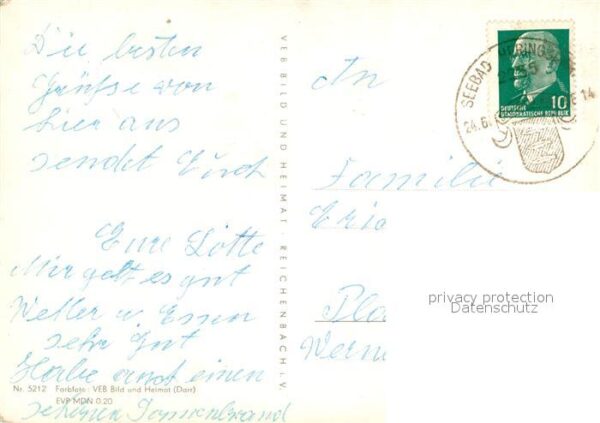 Die besten
Grüße von
hier aus
sendet Euch
Eure Lotte
Mir geht es gut
Wetter u. Essen
sehr gut
Habe auch einen
schönen Sonnenbrand
Nr. 5212 Farbfoto: VEB Bild und Heimat (Darr)
EVP MDN 0.20
VEB BILD UND HEIMAT · REICHENBACH i. V.
An
Familie
Pla
Wern
SEEBAD
24.6
14
DEUTSCHE
DEMOKRATISCHE REPUBLIK
10
privacy protection
Datenschutz